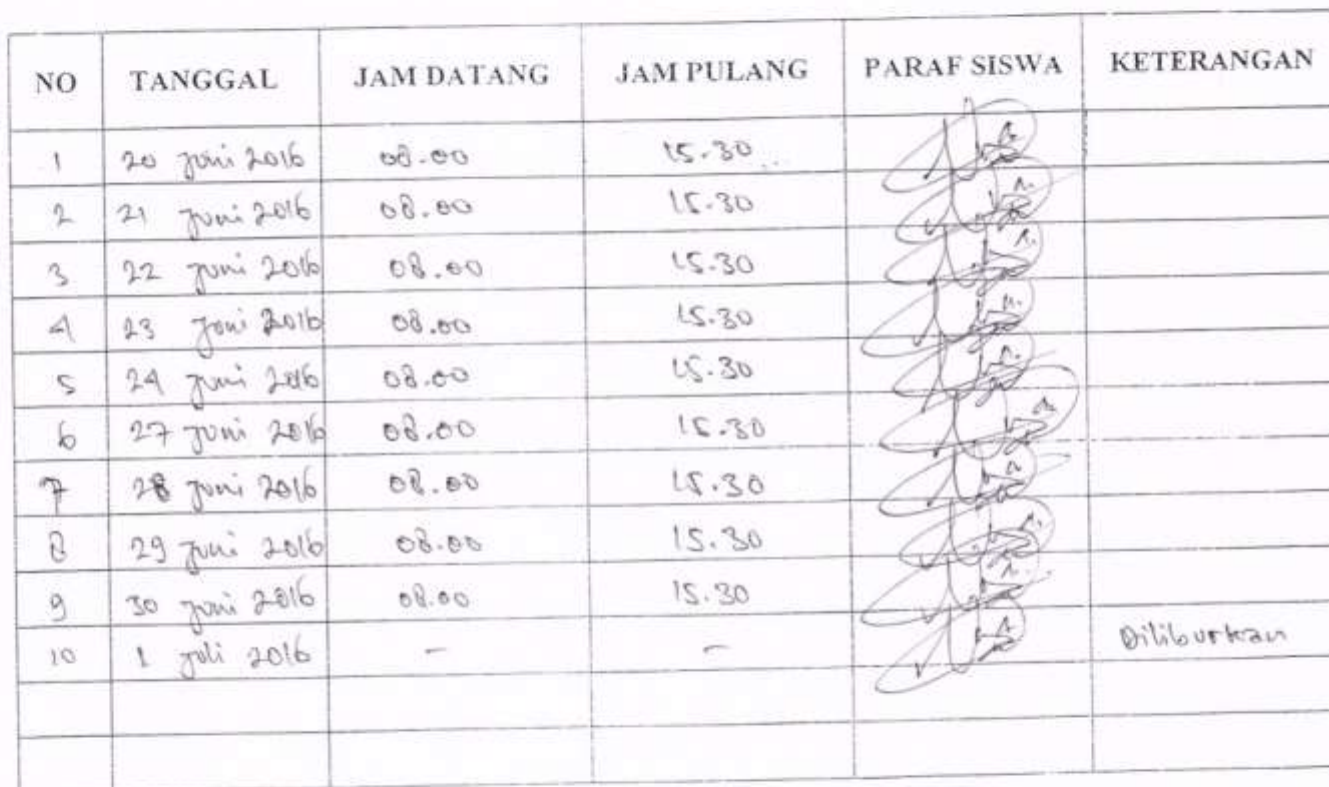 NO TANGGAL JAM DATANG JAM PULANG PARAF SISWA KETERANGAN
1 20 Juni 2016 08.00 15.30
2 21 Juni 2016 08.00 15.30
3 22 Juni 2016 08.00 15.30
4 23 Juni 2016 08.00 15.30
5 24 Juni 2016 08.00 15.30
6 27 Juni 2016 08.00 15.30
7 28 Juni 2016 08.00 15.30
8 29 Juni 2016 08.00 15.30
9 30 Juni 2016 08.00 15.30
10 1 Juli 2016 - - Diliburkan